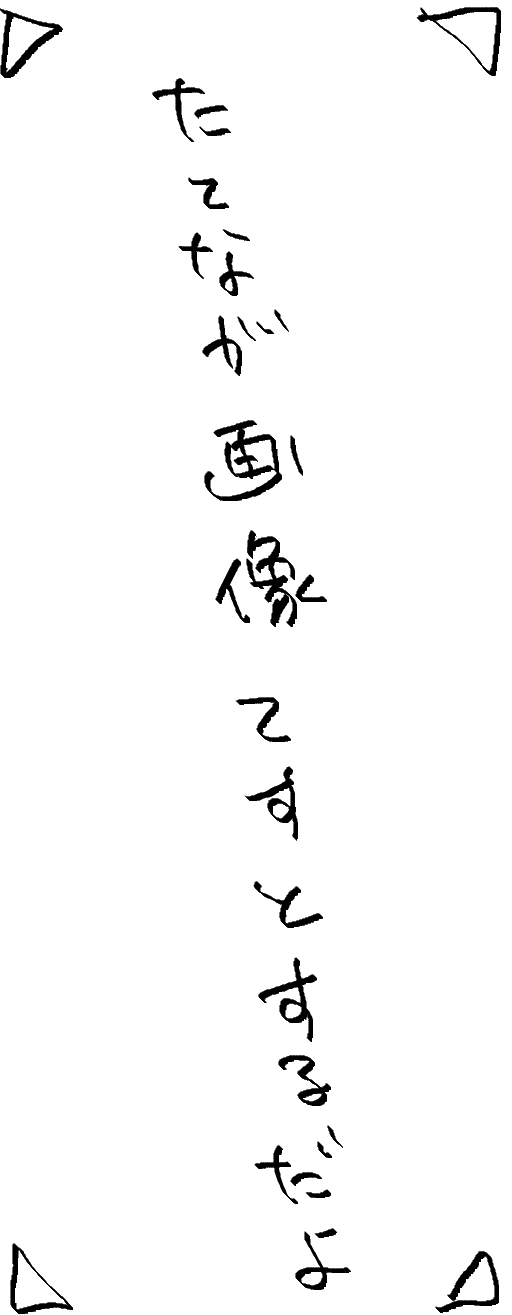 たてなが画像てすとするだよ